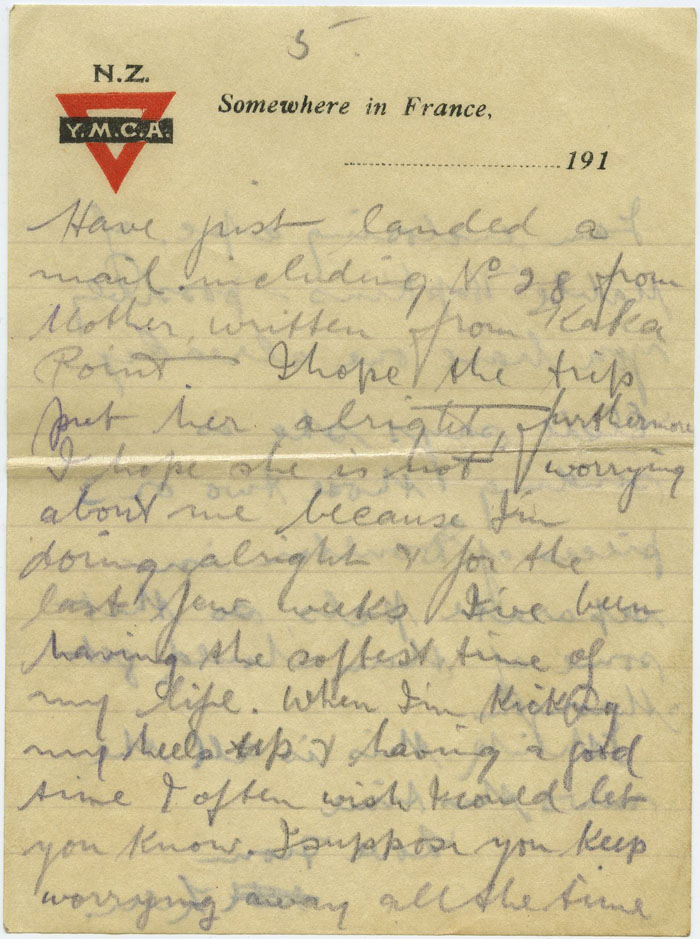 5.
N.Z.
Y.M.C.A.
Somewhere in France,
191
Have just landed a
mail including No 28 from
Mother, written from Kaka
Point — I hope the trip
put her alright, furthermore
I hope she is not worrying
about me because I'm
doing alright & for the
last few weeks I've been
having the softest time of
my life. When I'm kicking
my heels up & having a good
time I often wish I could let
you know. I suppose you keep
worrying away all the time